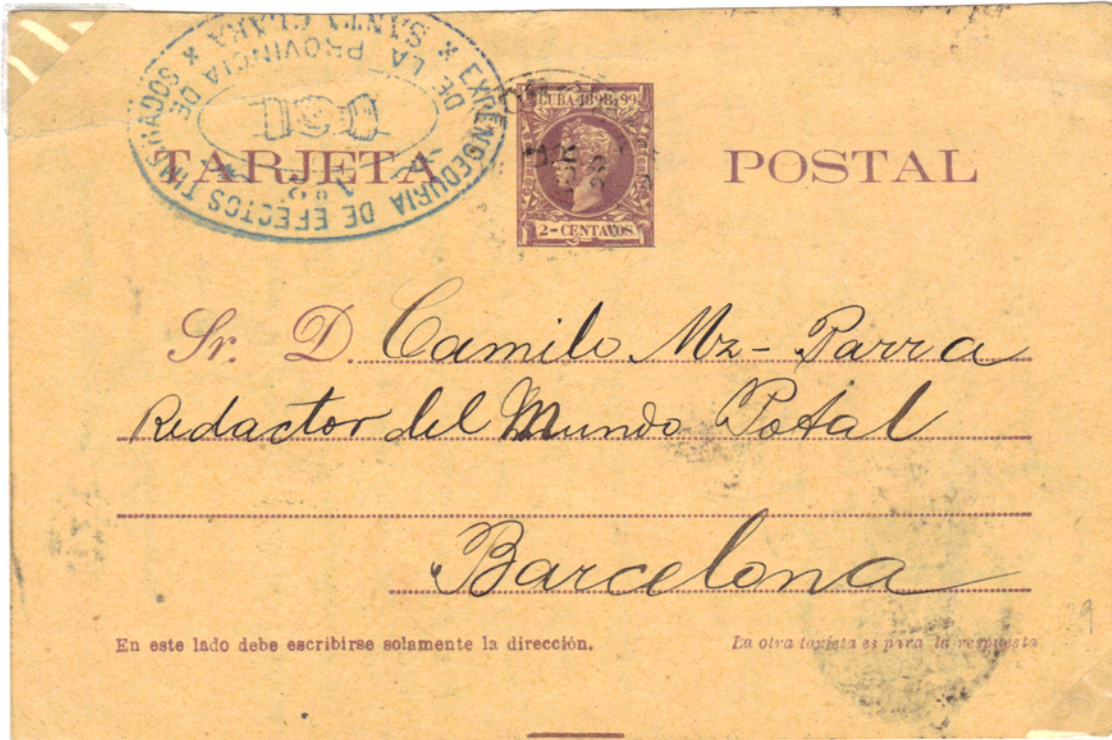 EXPENDEDURIA DE EFECTOS TIMB
DE LA PROVINCIA DE
* SANTA CLARA *
CUBA 1898 y 99
TARJETA POSTAL
2-CENTAVOS
Sr. D. Camilo Mz - Parra
Redactor del Mundo Potal
Barcelona
En este lado debe escribirse solamente la dirección.
La otra tarjeta es para la respuesta
29